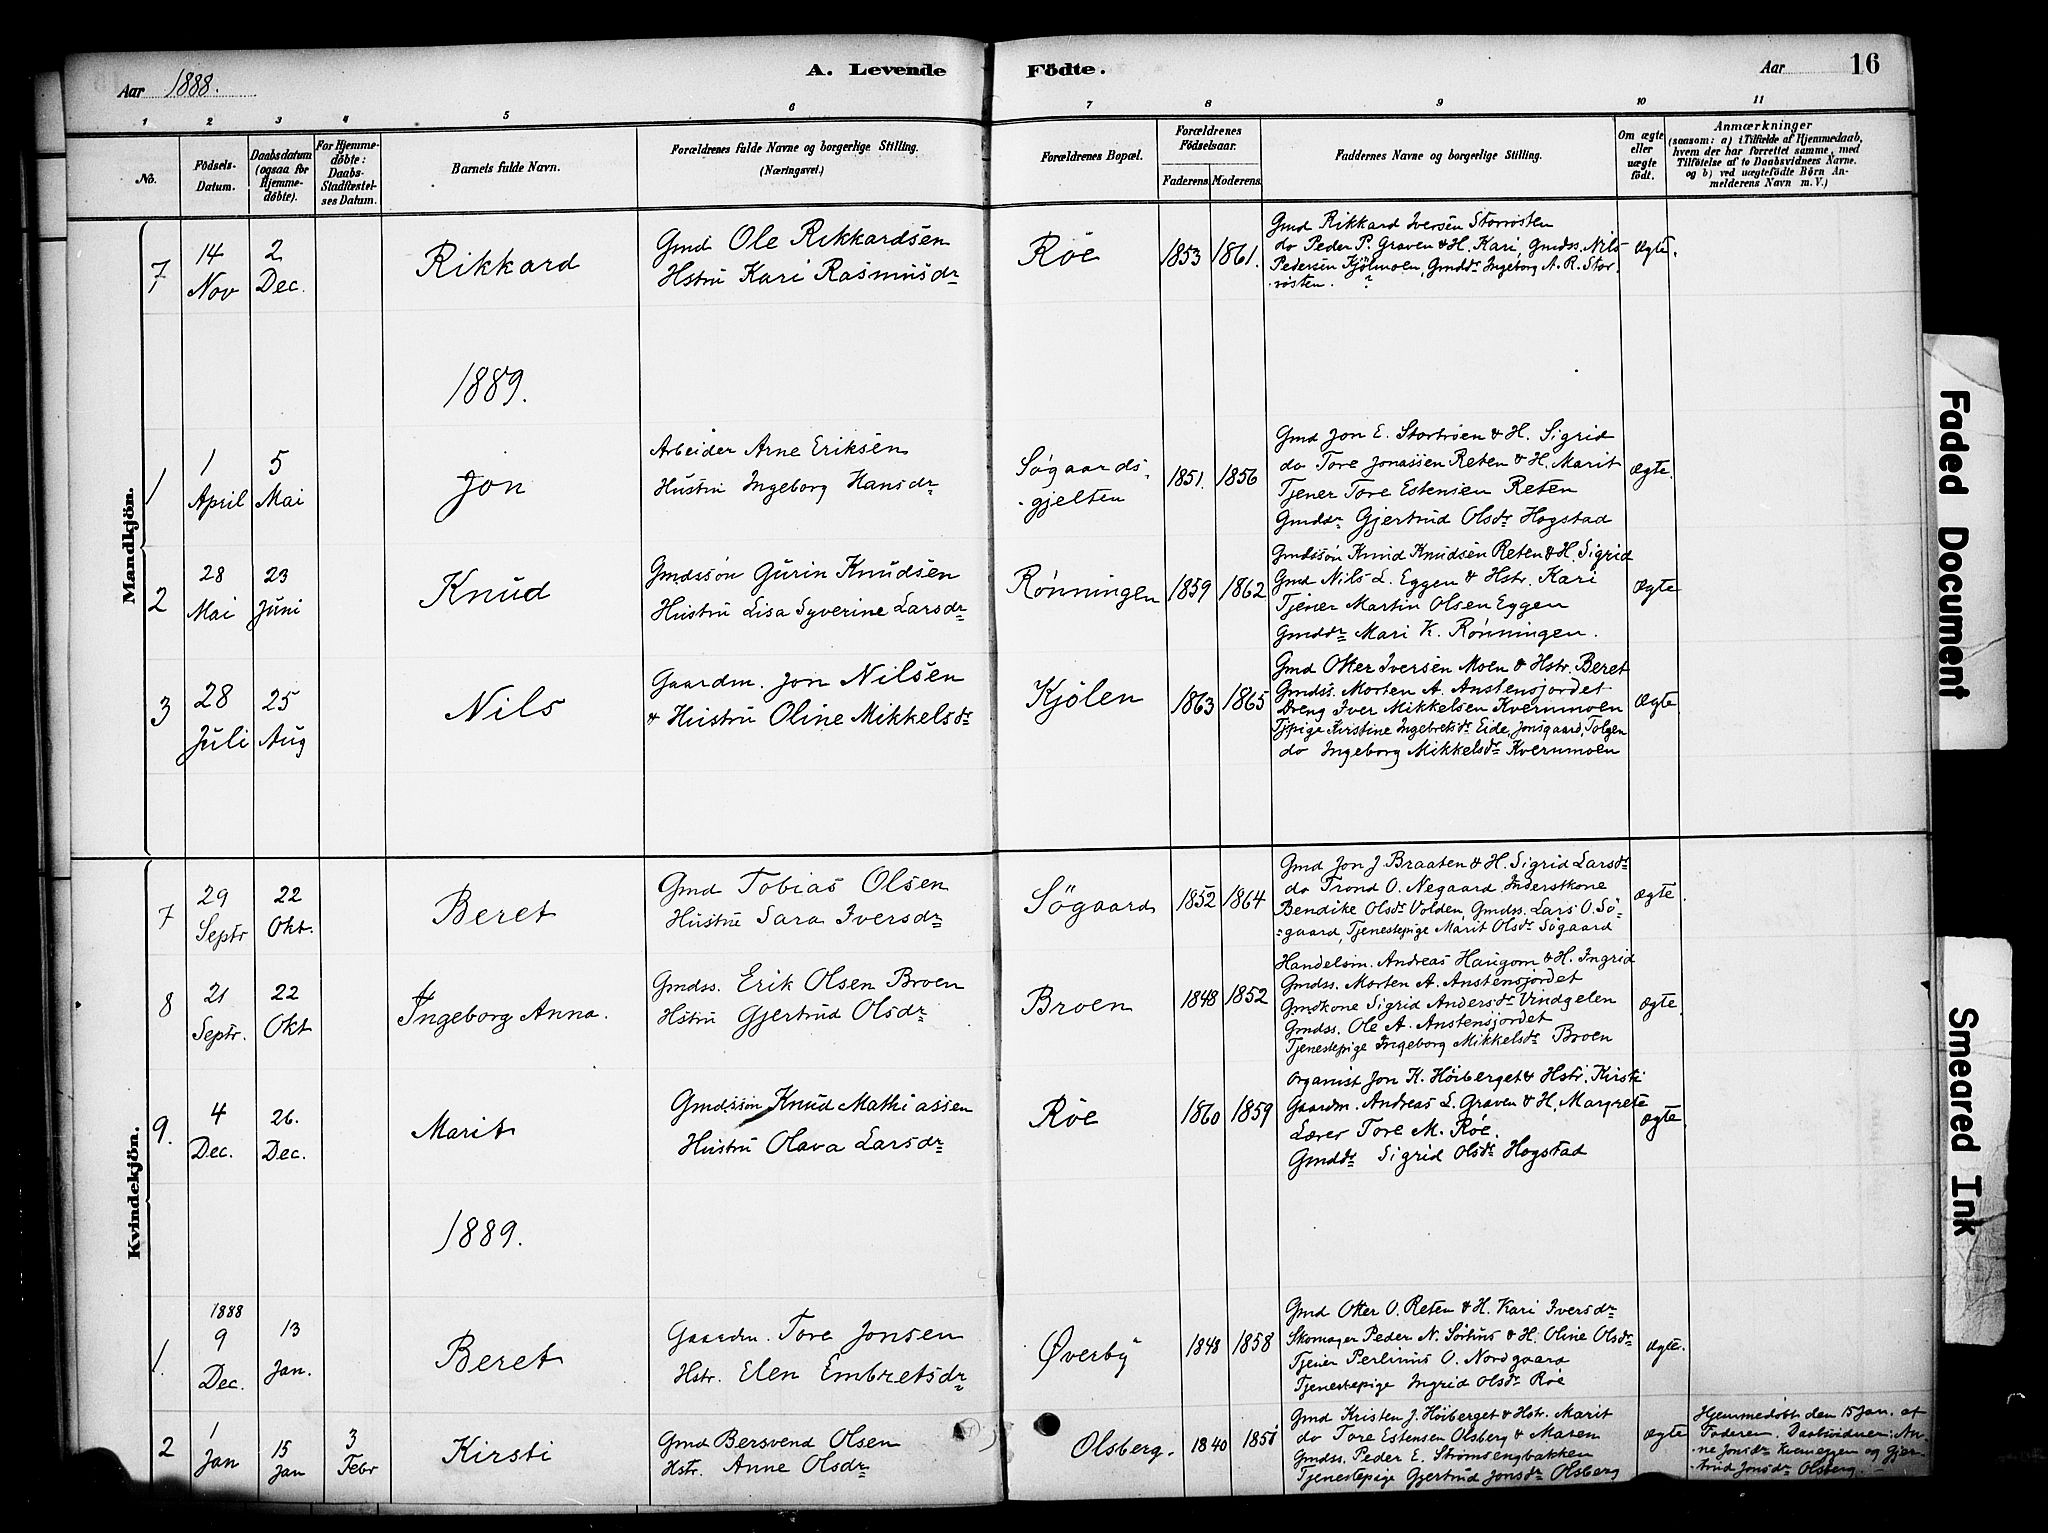 Aar 1888.
A. Levende Födte.
Aar 16
1 2 3 4 5 6 7 8 9 10 11
No.
Födsels-Datum.
Daabsdatum (ogsaa for Hjemme-døbte).
For Hjemme-døbte: Daabs-Stadfæstel-ses Datum.
Barnets fulde Navn.
Forældrenes fulde Navne og borgerlige Stilling. (Næringsvei.)
Forældrenes Bopæl.
Forældrenes Födselsaar.
Faderens. Moderens.
Faddernes Navne og borgerlige Stilling.
Om ægte eller uægte födt.
Anmærkninger
(saasom: a) i Tilfælde af Hjemmedaab,
hvem der har forrettet samme, med
Tilföielse af to Daabsvidners Navne.
og b) ved uægtefödte Börn An-
melderens Navn m. V.)
Mandkjön.
7
14 Nov
2 Dec.
Rikkard
Gmd Ole Rikkardsen
Hstru Kari Rasmusdr
Röe
1853 1861.
Gmd Rikkard Iversen Storrøsten
do Peder P. Graven & H. Kari, Gmdss. Nils
Pedersen Kjölmoen, Gmddr Ingeborg A. R. Stor-
røsten. ?
ægte.
1889.
1
1 April
5 Mai
Jon
Arbeider Arne Eriksen
Hustru Ingeborg Hansdr
Søgaards-
gjelten
1851. 1856
Gmd Jon E. Stortrøen & H. Sigrid
do Tore Jonassen Reten & H. Marit
Tjener Tore Estensen Reten
Gmddr Gjertrud Olsdr Hogstad
ægte.
2
28 Mai
23 Juni
Knud
Gmdssøn Gurin Knudsen
Hustru Lisa Syverine Larsdr
Rønningen
1859 1862
Gmdssøn Knud Knudsen Reten & H. Sigrid
Gmd Nils L. Eggen & Hstr. Kari
Tjener Martin Olsen Eggen
Gmddr Mari K. Rønningen.
ægte
3
28 Juli
25 Aug
Nils
Gaardm. Jon Nilsen
& Hustru Oline Mikkelsdr
Kjölen
1863 1865
Gmd Otter Iversen Moen & Hstr. Beret
Gmdss. Morten A. Anstensjordet
Dreng Iver Mikkelsen Kvernmoen
Tjpige Kirstine Ingebretsdr Eide, Jonsgaard, Tolgen
do Ingeborg Mikkelsdr Kvernmoen
ægte
Kvindekjön.
7
29 Septr
22 Okt.
Beret
Gmd Tobias Olsen
Hustru Sara Iversdr
Søgaard
1852 1864
Gmd Jon J. Braaten & H. Sigrid Larsdr
do Trond O. Negaard, Inderstkone
Bendike Olsdr Volden, Gmdss. Lars O. Sö-
gaard, Tjenestepige Marit Olsdr Søgaard
ægte.
8
21 Septr.
22 Okt
Ingeborg Anna.
Gmdss. Erik Olsen Broen
Hstru Gjertrud Olsdr
Broen
1848 1852
Handelsm. Andreas Haugom & H. Ingrid
Gmdss. Morten A. Anstensjordet
Gmdkone Sigrid Andersdr Vindgelen
Gmdss. Ole A. Anstensjordet
Tjenestepige Ingeborg Mikkelsdr Broen
ægte.
9.
4 Dec.
26. Dec.
Marit
Gmdssøn Knud Mathiassen
Hustru Olava Larsdr
Röe
1860 1859
Organist Jon K. Höiberget & Hstr. Kirsti
Gaardm. Andreas L. Graven & H. Margrete
Lærer Tore M. Röe.
Gmddr Sigrid Olsdr Hogstad
ægte.
1889.
1.
1888
9 Dec.
13 Jan.
Beret
Gaardm. Tore Jonsen
Hstr. Elen Embretsdr
Øverby
1848 1858
Gmd Otter O. Reten & H. Kari Iversdr
Skomager Peder N. Sørhus & H. Oline Olsdr
Tjener Perlinus O. Nordgaard
Tjenestepige Ingrid Olsdr Röe
ægte.
2
1 Jan
15 Jan
3 Febr
Kirsti
Gmd Bersvend Olsen
Hstr. Anne Olsdr
Olsberg.
1840 1851
Gmd Kristen J. Höiberget & Hstr. Marit
do Tore Estensen Olsberg & Maren
Gmdss. Peder E. Strömsengbakken
Tjenestepige Gjertrud Jonsdr Olsberg
ægte
Hjemmedöbt den 15 Jan. af
Faderen. Daabsvidner: An-
ne Jonsdr Kverneggen og Gjer-
trud Jonsdr Olsberg.
Faded Document
Smeared Ink